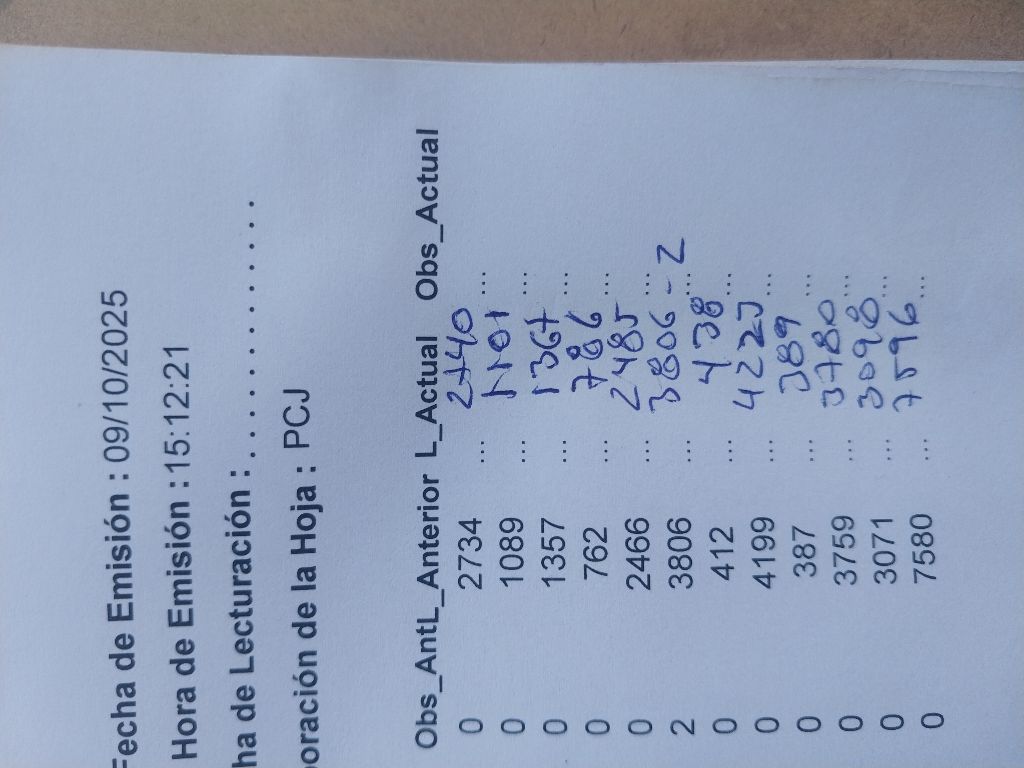 Fecha de Emisión : 09/10/2025
Hora de Emisión :15:12:21
ha de Lecturación : . . . . . . . . . . . . . . . .
oración de la Hoja : PCJ
Obs_AntL_Anterior L_Actual Obs_Actual
0 2734 ... 2740 ...
0 1089 ... 1101 ...
0 1357 ... 1367 ...
0 762 ... 786 ...
0 2466 ... 2485 ...
2 3806 ... 3806 - 2 ...
0 412 ... 438 ...
0 4199 ... 4225 ...
0 387 ... 389 ...
0 3759 ... 3780 ...
0 3071 ... 3098 ...
0 7580 ... 7596 ...